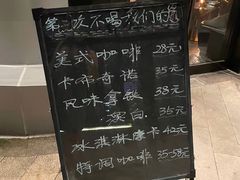 第二次不喝我们的
美式咖啡 28元
卡布奇诺 35元
风味拿铁 38元
澳白 35元
冰淇淋摩卡 42元
特调咖啡 35-58元